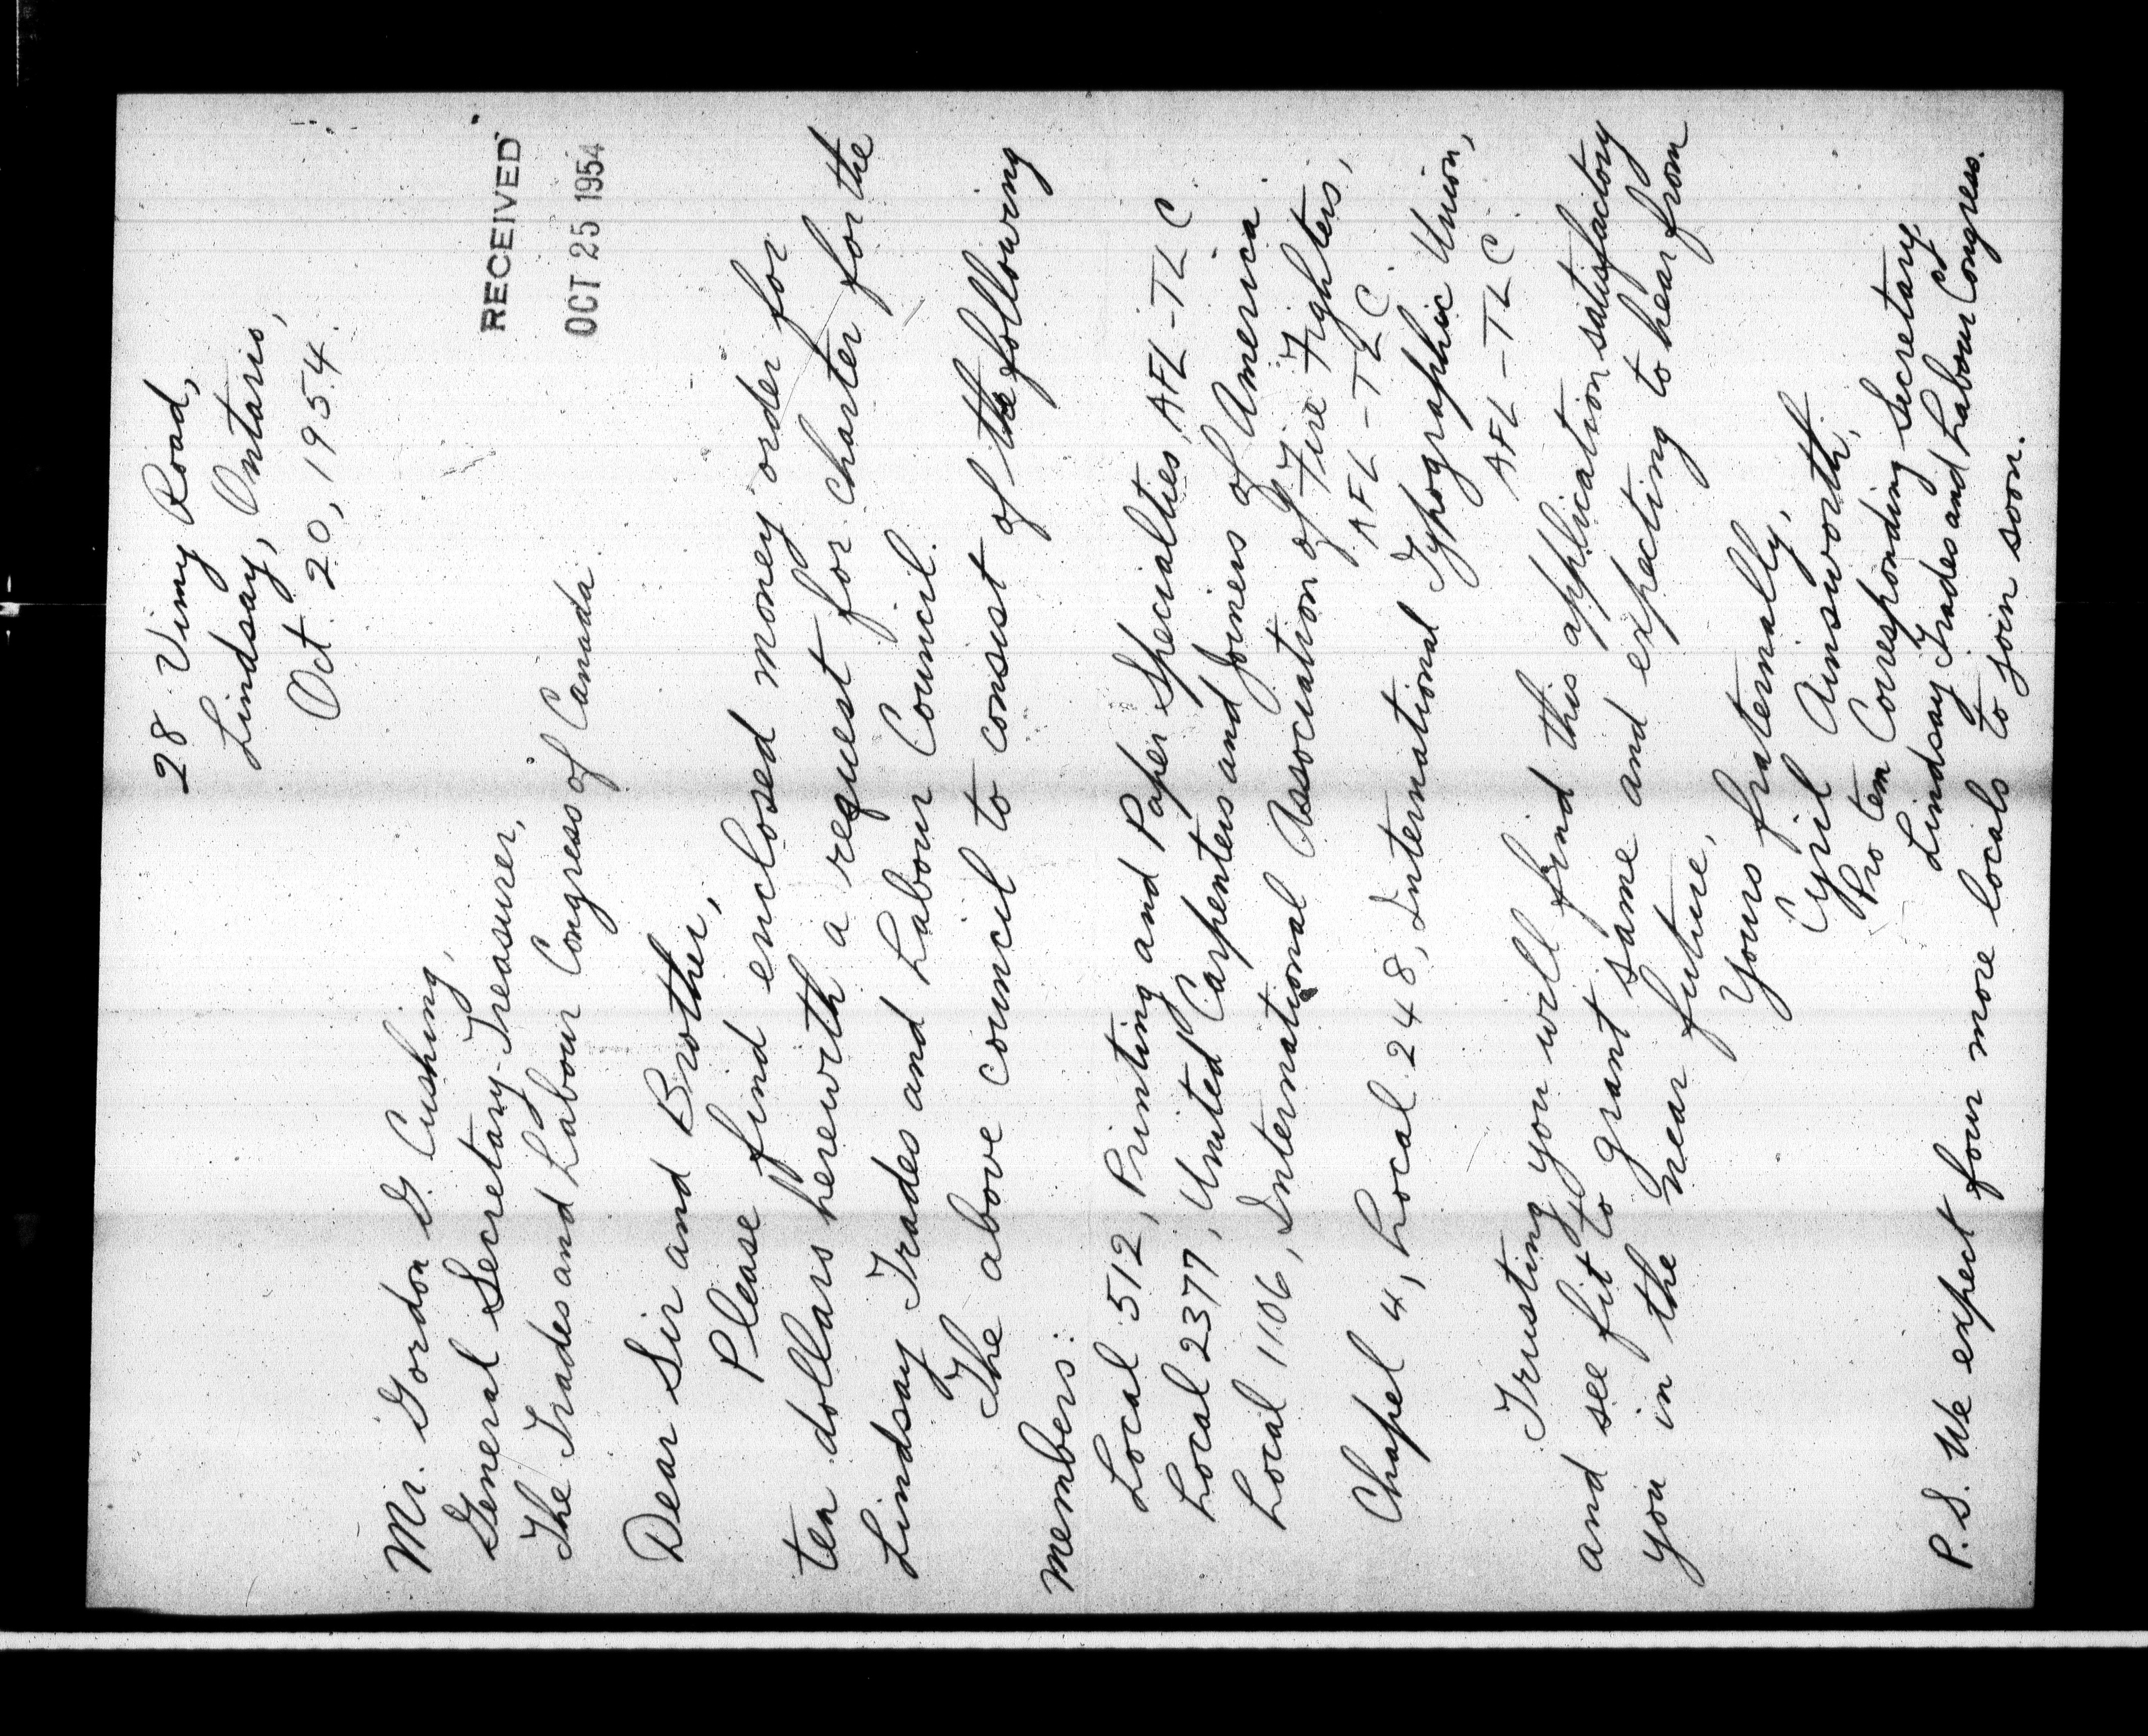 28 Vimy Road,
Lindsay, Ontario,
Oct. 20, 1954.
RECEIVED
OCT 25 1954
Mr. Gordon G. Cushing,
General Secretary-Treasurer,
The Trades and Labour Congress of Canada.
Dear Sir and Brother,
Please find enclosed money order for
ten dollars herewith a request for charter for the
Lindsay Trades and Labour Council.
The above council to consist of the following
members:
Local 512, Printing and Paper Specialties, AFL-TLC
Local 2377, United Carpenters and Joiners of America
Local 1106, International Association of Fire Fighters,
AFL-TLC
Chapel 4, Local 248, International Typographic Union,
AFL-TLC
Trusting you will find this application satisfactory
and see fit to grant same and expecting to hear from
you in the near future,
Yours fraternally,
Cyril Ainsworth,
Pro tem Corresponding Secretary
Lindsay Trades and Labour Congress.
P.S. We expect four more locals to join soon.